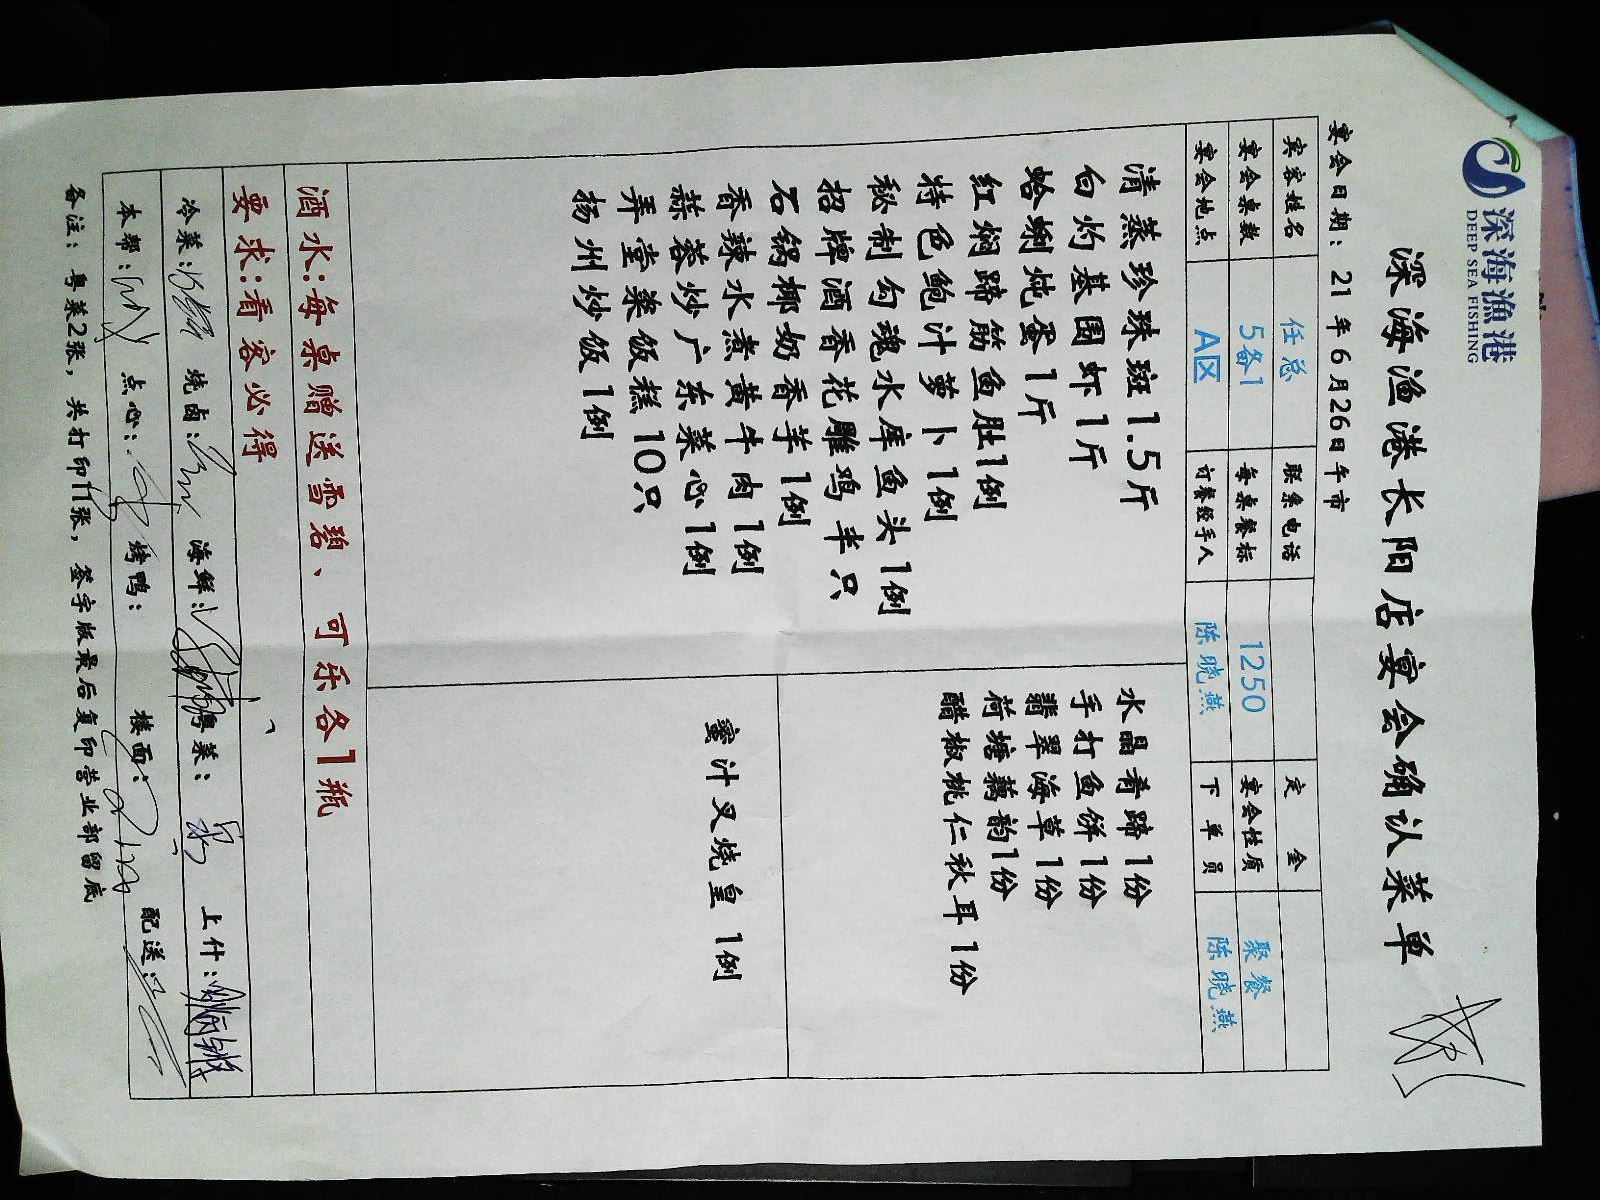 深海渔港
DEEP SEA FISHING
深海渔港长阳店宴会确认菜单
宴会日期：21年6月26日午市
宾客姓名 任总 联系电话 定金
宴会桌数 5备1 每桌餐标 1250 宴会性质 聚餐
宴会地点 A区 订餐经手人 陈晓燕 下单员 陈晓燕
清蒸珍珠斑1.5斤
白灼基围虾1斤
蛤蜊炖蛋1斤
红焖蹄筋鱼肚1例
特色鲍汁萝卜1例
秘制勾魂水库鱼头1例
招牌酒香花雕鸡半只
石锅椰奶香芋1例
香辣水煮黄牛肉1例
蒜蓉炒广东菜心1例
弄堂菜饭糕10只
扬州炒饭1例
水晶肴蹄1份
手打鱼饼1份
翡翠海草1份
荷塘藕韵1份
醋椒桃仁秋耳1份
蜜汁叉烧皇1例
酒水：每桌赠送雪碧、可乐各1瓶
要求：看容必得
冷菜： 烧卤： 海鲜： 粤菜： 上什：
本帮： 点心： 烤鸭： 楼面： 配送：
备注：粤菜2张，共打印11张，签字版最后复印营业部留底